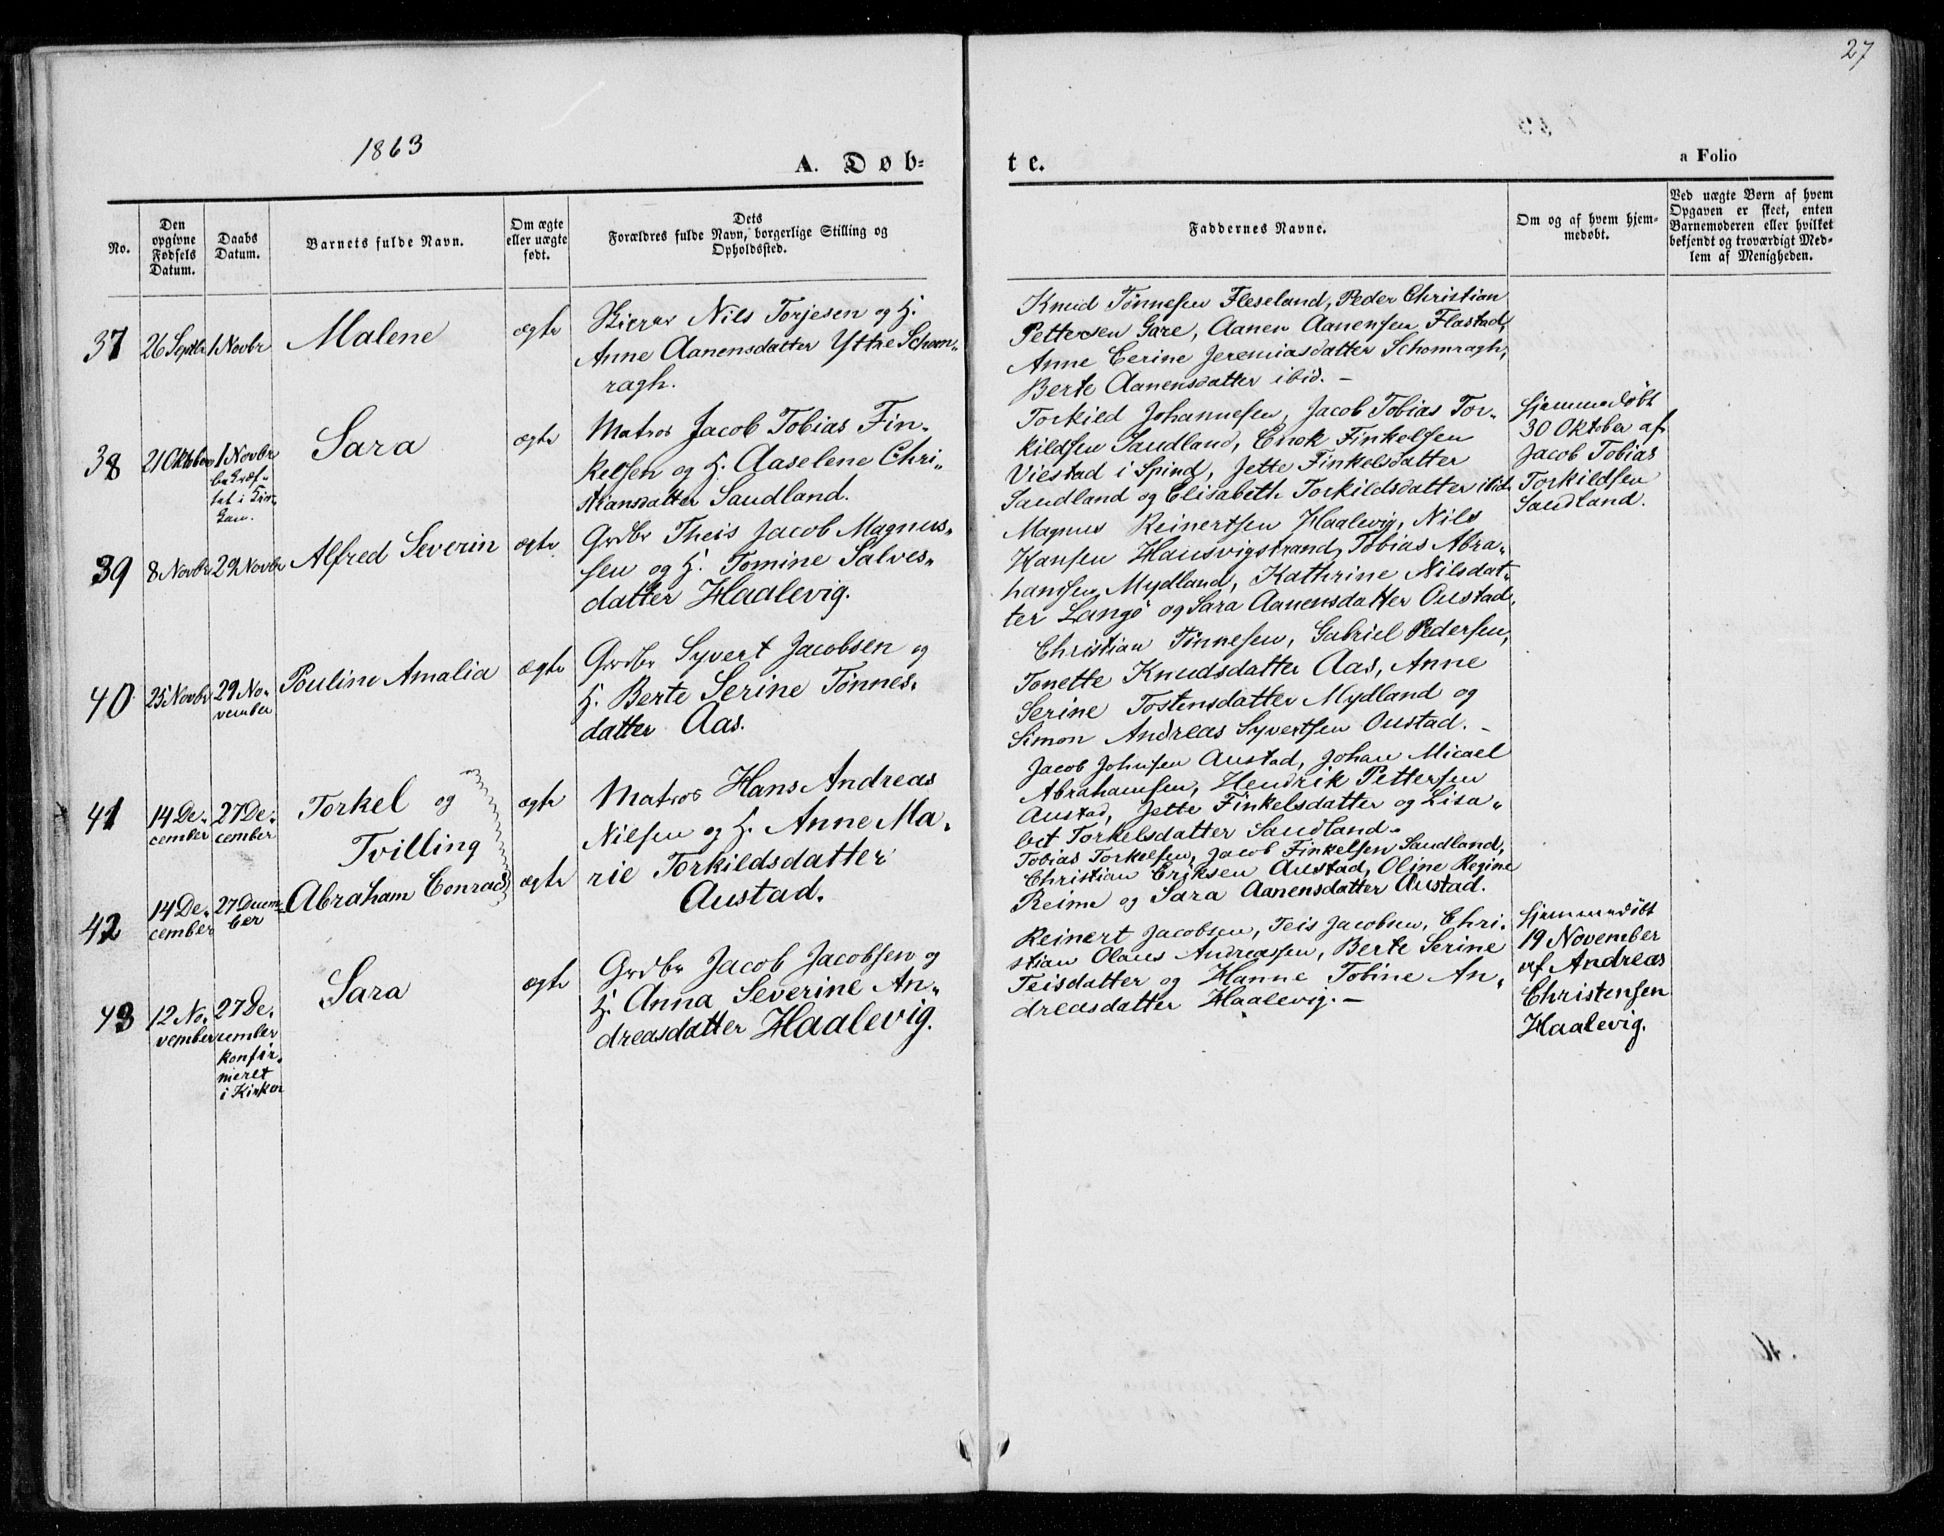 27
1863
A. Døb-
te.
a Folio
No.
Den opgivne Fødsels Datum.
Daabs Datum.
Barnets fulde Navn.
Om ægte eller uægte født.
Dets Forældres fulde Navn, borgerlige Stilling og Opholdssted.
Faddernes Navne.
Om og af hvem hjem-
medøbt.
Ved uægte Børn af hvem
Opgaven er skeet, enten
Barnemoderen eller hvilket
bekjendt og troværdigt Med-
lem af Menigheden.
37 26 Septbr 1 Novbr Malene ægte
Nils Torjesen og H.
Anne Aanensdatter Yttre Schom-
ragh.
Knud Tønnesen Fleseland, Peder Christian
Pettersen Gare, Aanen Aanensen Flastad,
Anne Cerine Jeremiasdatter Schomragh,
Berte Aanensdatter ibid. –
38 21 Oktober 1 Novbr
bekræf-
tet i Kir-
ken.
Sara ægte
Matros Jacob Tobias Fin-
kelsen og H. Aaselene Chri-
stiansdatter Saudland.
Torkild Johannesen, Jacob Tobias Tor-
kildsen Saudland, Enok Finkelsen
Viestad i Spind, Jette Finkelsdatter
Saudland og Elisabeth Torkildsdatter ibid.
Hjemmedøbt
30 Oktober af
Jacob Tobias
Torkildsen
Saudland.
39 8 Novbr 29 Novbr Alfred Severin ægte
Grdbr Theis Jacob Magnus-
sen og H. Tomine Salves-
datter Haalevig.
Magnus Reinertsen Haalevig, Nils
Hansen Hausvigstrand, Tobias Abra-
hamsen Mydland, Kathrine Nilsdat-
ter Langø og Sara Aanensdatter Oustad.
40 25 Novbr 29 No-
vember
Pouline Amalia ægte
Grdbr Syvert Jacobsen og
H. Berte Serine Tønnes-
datter Aas.
Christian Tønnesen, Gabriel Pedersen,
Tonette Knudsdatter Aas, Anne
Serine Tostensdatter Mydland og
Simon Andreas Syvertsen Oustad. –
41 14 De-
cember
27 De-
cember
Torkel og
Tvilling
ægte
Matros Hans Andreas
Nilsen og H. Anne Ma-
rie Torkildsdatter
Austad.
Jacob Johnsen Austad, Johan Micael
Abrahamsen, Hendrik Pettersen
Austad, Jette Finkelsdatter og Lisa-
bet Torkelsdatter Saudland.
42 14 De-
cember
27 Decem-
ber
Abraham Conrad ægte
Tobias Torkelsen, Jacob Finkelsen Saudland,
Christian Eriksen Austad, Oline Regine
Reime og Sara Aanensdatter Austad.
43 12 No-
vember
27 De-
cember
konfir-
meret
i Kirken
Sara ægte
Grdbr Jacob Jacobsen og
H. Anna Severine An-
dreasdatter Haalevig.
Reinert Jacobsen, Teis Jacobsen, Chri-
stian Olaus Andreassen, Berte Serine
Teisdatter og Hanne Tobine An-
dreasdatter Haalevig. –
Hjemmedøbt
19 November
af Andreas
Christensen
Haalevig.